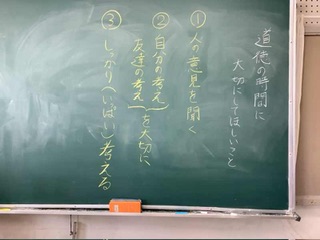 道徳の時間に
大切にしてほしいこと
① 人の意見を聞く
② 自分の考え
友達の考え
を大切に
③ しっかり(いっぱい)考える